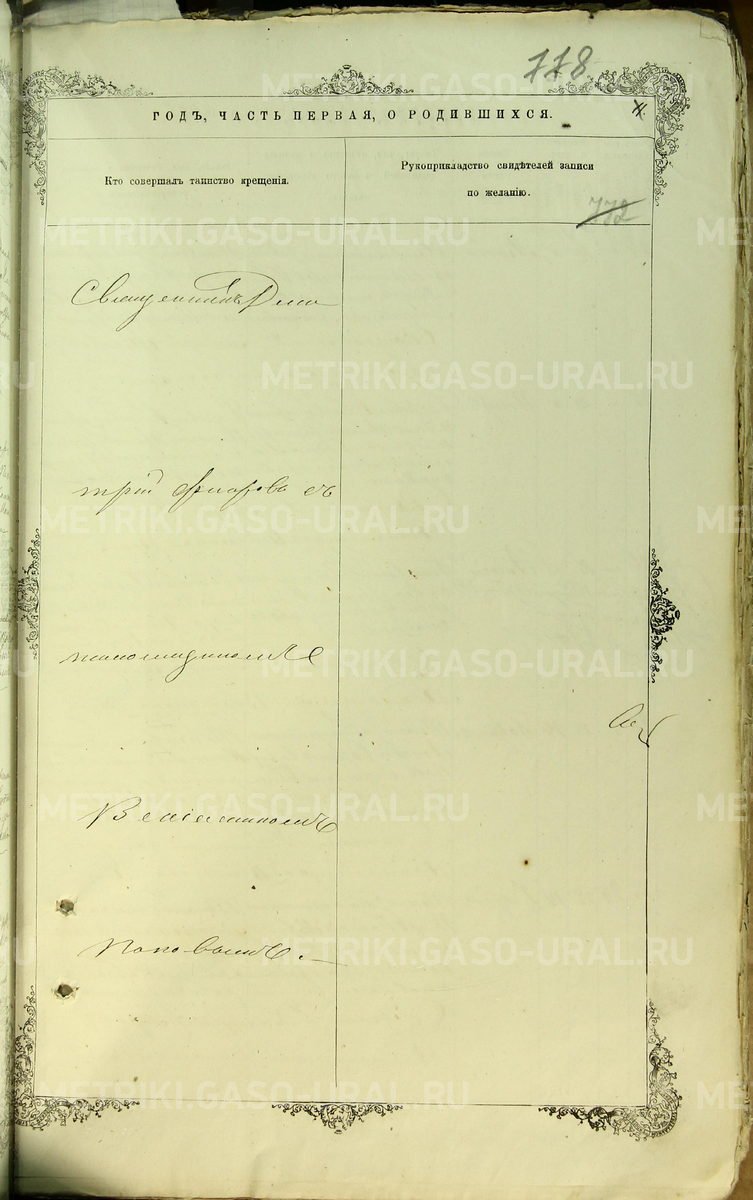 778
ГОДЪ, ЧАСТЬ ПЕРВАЯ, О РОДИВШИХСЯ.
Кто совершалъ таинство крещенія.
Рукоприкладство свидѣтелей записи
по желанію.
772
Священникъ Дми
трій съ
пономаремъ
Веніаминомъ
Поповымъ.
METRIKI.GASO-URAL.RU